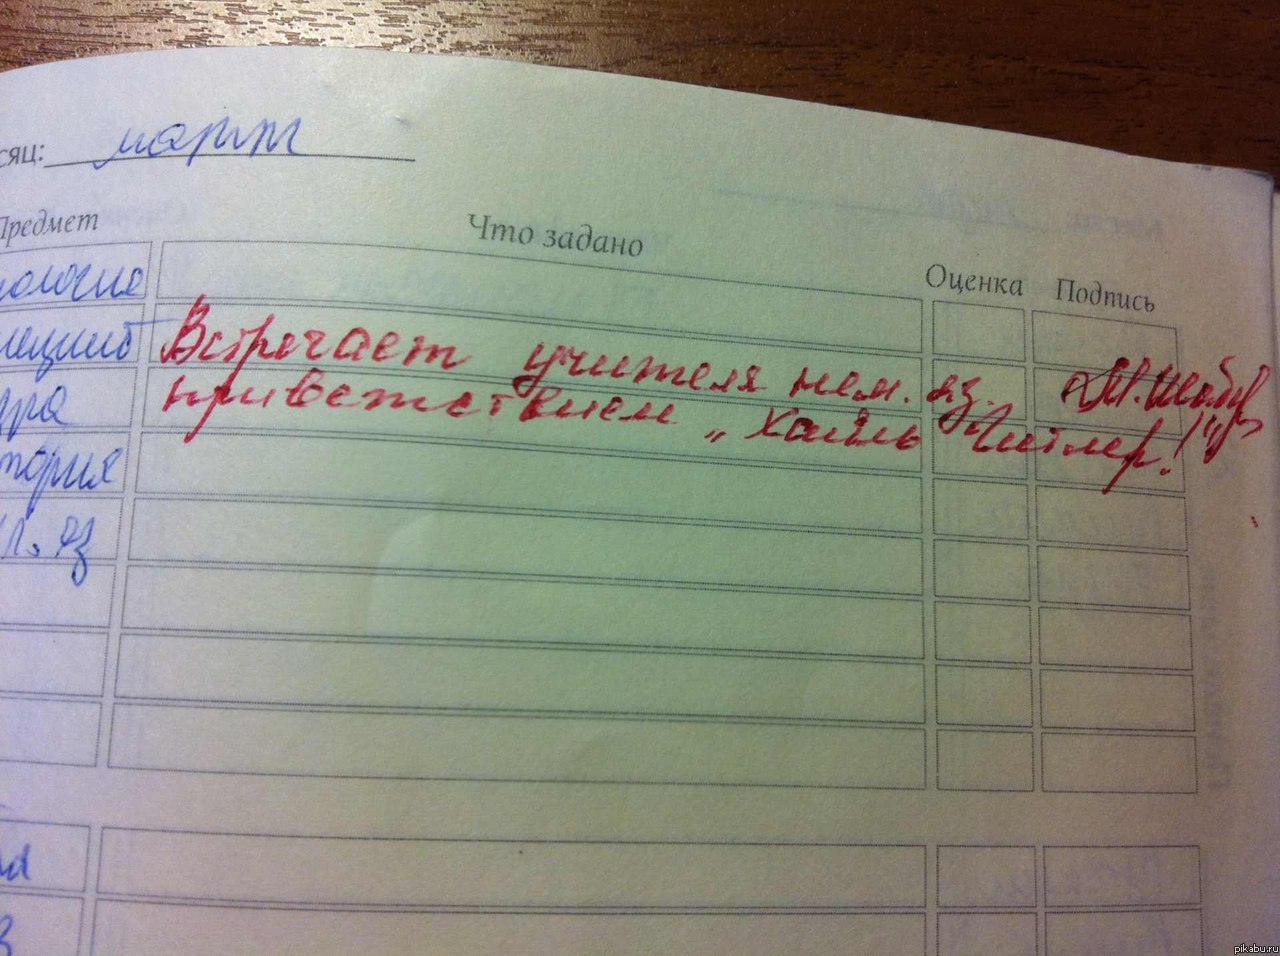 сяц: март
Предмет Что задано Оценка Подпись
Встречает учителя нем. яз.
приветствием „Хайль Гитлер!"
тория
л. яз
pikabu.ru